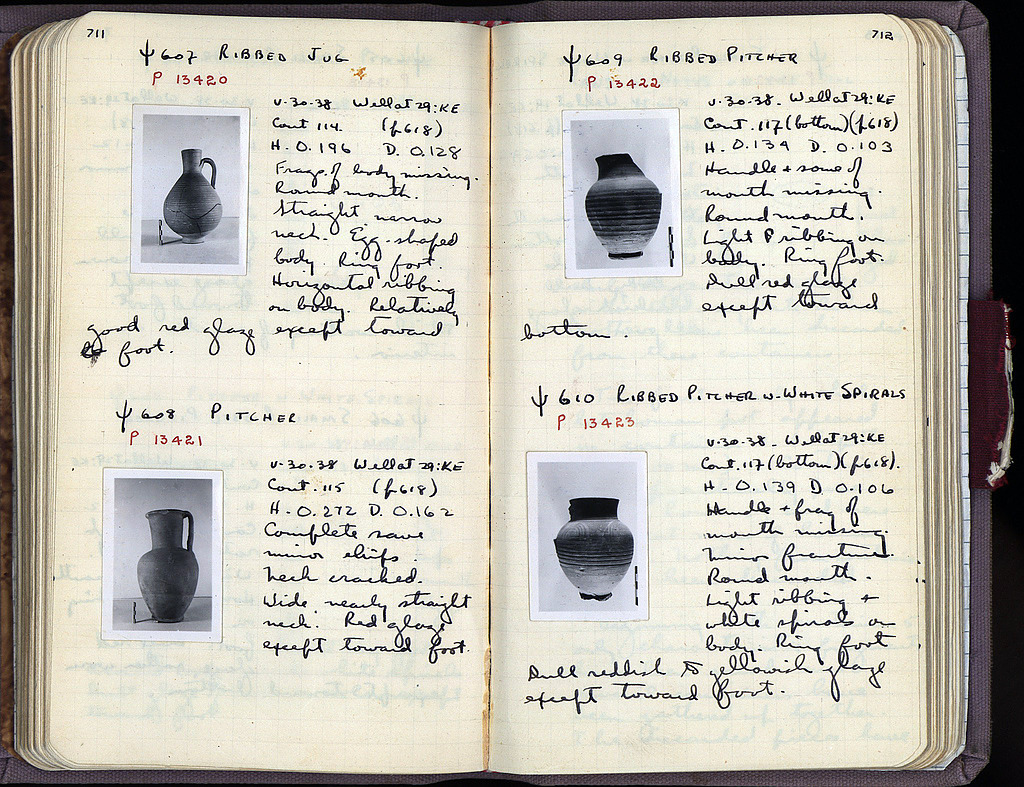 711
Ψ 607 RIBBED JUG
P 13420
V-30-38 Well at 29:KE
Cont 114. (p.618)
H. 0.196 D. 0.128
Frags. of body missing.
Round mouth.
Straight narrow
neck. Egg-shaped
body. Ring foot.
Horizontal ribbing
on body. Relatively
good red glaze except toward
foot.
Ψ 608 PITCHER
P 13421
V-30-38 Well at 29:KE
Cont. 115 (p.618)
H. 0.272 D. 0.162
Complete save
minor chips.
Neck cracked.
Wide, nearly straight
neck. Red glaze
except toward foot.
712
Ψ 609 RIBBED PITCHER
P 13422
V-30-38. Well at 29:KE
Cont. 117 (bottom) (p.618)
H. 0.134 D. 0.103
Handle + some of
mouth missing.
Round mouth.
Light ribbing on
body. Ring foot.
Dull red glaze
except toward
bottom.
Ψ 610 RIBBED PITCHER W-WHITE SPIRALS
P 13423
V-30-38. Well at 29:KE
Cont. 117 (bottom) (p.618).
H. 0.139 D 0.106
Handle + frag of
mouth missing.
Minor fractures.
Round mouth.
Light ribbing +
white spirals on
body. Ring foot
Dull reddish to yellowish glaze
except toward foot.